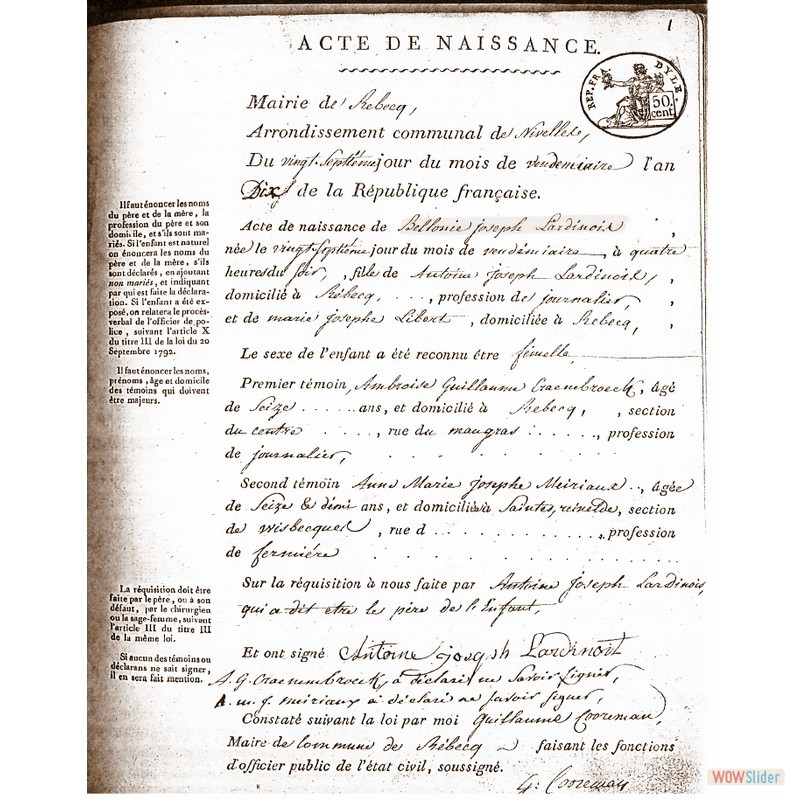 1
ACTE DE NAISSANCE.
REP. FRA. DYLE.
50 cent
Mairie de Rebecq,
Arrondissement communal de Nivelles,
Du vingt Septième jour du mois de vendemiaire l'an
Dix de la République française.
Il faut énoncer les noms
du père et de la mère, la
profession du père et son
domicile, et s'ils sont ma-
riés. Si l'enfant est naturel
on énoncera les noms du
père et de la mère, s'ils
sont déclarés, en ajoutant
non mariés, et indiquant
par qui est faite la déclara-
tion. Si l'enfant a été ex-
posé, on relatera le procès-
verbal de l'officier de po-
lice, suivant l'article X
du titre III de la loi du 20
Septembre 1792.
Il faut énoncer les noms,
prénoms, âge et domicile
des témoins qui doivent
être majeurs.
Acte de naissance de Bellonie joseph Lardinois,
née le vingt Septième jour du mois de vendémiaire, à quatre
heures du soir, fille de Antoine joseph Lardinois,
domicilié à Rébecq, profession de journalier,
et de marie josephe Libert, domiciliée à Rebecq,
Le sexe de l'enfant a été reconnu être fémelle,
Premier témoin, Ambroise Guillaume Craenbroeck, âgé
de Seize ...... ans, et domicilié à Rebecq, section
du centre ....., rue du maugras ......, profession
de journalier,
Second témoin Anne Marie josephe Meiriaux .., âgée
de Seize & démi ans, et domiciliée à Saintes, section
de wisbecque, rue d ......, profession
de fermiére
La réquisition doit être
faite par le père, ou à son
défaut, par le chirurgien
ou la sage-femme, suivant
l'article III du titre III
de la même loi.
Si aucun des témoins ou
déclarans ne sait signer,
il en sera fait mention.
Sur la réquisition à nous faite par Antoine Joseph Lardinois,
qui a dit etre le père de l'Enfant,
Et ont signé Antoine joseph Lardinoit
A. G. Craenmbroeck, à déclaré ne Savoir signer,
A. m. j. meiriaux à déclaré ne savoir signer,
Constaté suivant la loi par moi Guillaume Cooreman,
Maire de commune de Rébecq faisant les fonctions
d'officier public de l'état civil, soussigné.
G: Cooreman
WOWSlider